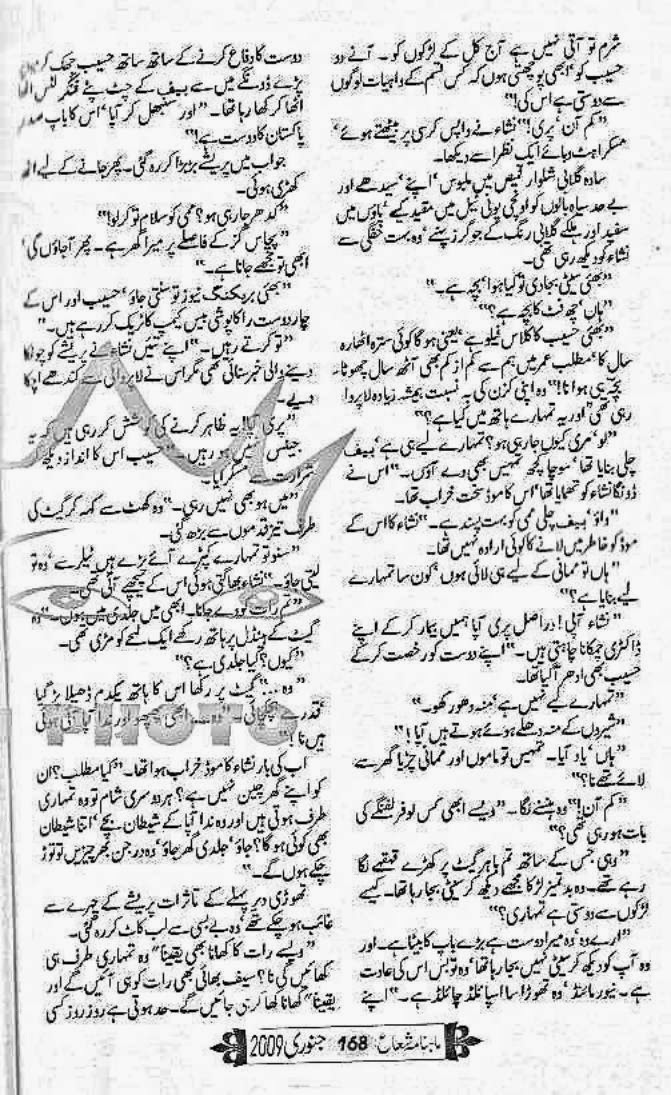 شرم تو آتی نہیں ہے آج کل کے لڑکوں کو۔ آنے دو
حسیب کو ابھی پوچھتی ہوں کہ کس قسم کے واہیات لوگوں
سے دوستی ہے اس کی!"
"کم آن' پری!" نشاء نے واپس کرسی پر بیٹھتے ہوئے'
مسکراہٹ دبائے ایک نظر اسے دیکھا۔
سادہ گلابی شلوار قمیص میں ملبوس' اپنے' سیدھے اور
بے حد سیاہ بالوں کو اونچی پونی ٹیل میں مقید کیے' پاؤں میں
سفید اور ہلکے گلابی رنگ کے جوگرز پہنے' وہ بہت خفگی سے
نشاء کو دیکھ رہی تھی۔
"بھئی سیٹی بجا دی تو کیا ہوا' بچہ ہے۔"
"ہاں' چھ فٹ کا بچہ ہے؟"
"بھئی حسیب کا کلاس فیلو ہے' یعنی ہو گا کوئی سترہ اٹھارہ
سال کا' مطلب عمر میں ہم سے کم از کم بھی آٹھ سال چھوٹا۔
بچہ ہی ہوا نا!" وہ اپنی کزن کی بہ نسبت ہمیشہ زیادہ لاپروا
رہی تھی "اور یہ تمہارے ہاتھ میں کیا ہے؟"
"لو' مری کیوں جا رہی ہو؟ تمہارے لیے ہی ہے' بیف
چلی بنایا تھا' سوچا کچھ تمہیں بھی دے آؤں۔" اس نے
ڈونگا نشاء کو تھمایا تھا' اس کا موڈ سخت خراب تھا۔
"واؤ' بیف چلی ممی کو بہت پسند ہے۔" نشاء کا اس کے
موڈ کو خاطر میں لانے کا کوئی ارادہ نہیں تھا۔
"ہاں تو ممانی کے لیے ہی لائی ہوں' کون سا تمہارے
لیے بنایا ہے؟"
"نشاء آپی! دراصل پری آپا ہمیں بیمار کر کے اپنے
ڈاکٹری چمکانا چاہتی ہیں۔" اپنے دوست کو رخصت کر کے
حسیب بھی ادھر آ گیا تھا۔
"تمہارے لیے نہیں ہے' منہ دھو رکھو۔"
"شیروں کے منہ دھلے ہوئے ہوتے ہیں آپا!"
"ہاں' یاد آیا۔ تمہیں تو ماموں اور ممانی چڑیا گھر سے
لائے تھے نا؟"
"کم آن!" وہ ہنسنے لگا۔ "ویسے ابھی کس لوفر لفنگے کی
بات ہو رہی تھی؟"
"وہی جس کے ساتھ تم باہر گیٹ پر کھڑے قہقہے لگا
رہے تھے۔ وہ بدتمیز لڑکا مجھے دیکھ کر سیٹی بجا رہا تھا۔ کیسے
لڑکوں سے دوستی ہے تمہاری؟"
"ارے وہ' وہ میرا دوست ہے بڑے باپ کا بیٹا ہے۔ اور
وہ آپ کو دیکھ کر سیٹی نہیں بجا رہا تھا' وہ تو بس اس کی عادت
ہے۔ نیور مائنڈ' وہ تھوڑا سا اسپائلڈ چائلڈ ہے۔" اپنے
دوست کا دفاع کرنے کے ساتھ ساتھ حسیب جھک کر
پڑے ڈونگے میں سے بیف کے چٹ پٹے فنگر لٹس اٹھا
اٹھا کر کھا رہا تھا۔ "اور سنبھل کر آپا' اس کا باپ صدر
پاکستان کا دوست ہے!"
جواب میں پریشے بڑبڑا کر رہ گئی۔ پھر جانے کے لیے اٹھ
کھڑی ہوئی۔
"کدھر جا رہی ہو؟ ممی کو سلام تو کر لو!"
"پچاس گز کے فاصلے پر میرا گھر ہے۔ پھر آ جاؤں گی'
ابھی تو مجھے جانا ہے۔"
"بھئی بریکنگ نیوز تو سنتی جاؤ' حسیب اور اس کے
چار دوست راکا پوشی بیس کیمپ کا ٹریک کر رہے ہیں۔"
"تو کرتے رہیں۔" اپنے تئیں نشاء نے پریشے کو چونکا
دینے والی خبر سنائی تھی مگر اس نے لاپروائی سے کندھے اچکا
دیے۔
"پری آپا! یہ ظاہر کرنے کی کوشش کر رہی ہیں کہ یہ
جیلس نہیں ہو رہیں۔" حسیب اس کا انداز دیکھ کر
شرارت سے مسکرایا۔
"میں ہو بھی نہیں رہی۔" وہ کھٹ سے کہہ کر گیٹ کی
طرف تیز قدموں سے بڑھ گئی۔
"سنو تو تمہارے کپڑے آئے پڑے ہیں ٹیلر سے' وہ تو
لیتی جاؤ۔" نشاء بھاگتی ہوئی اس کے پیچھے آئی تھی۔
"تم رات کو دے جانا۔ ابھی میں جلدی میں ہوں۔" وہ
گیٹ کے ہینڈل پر ہاتھ رکھے ایک لمحے کو مڑی تھی۔
"کیوں؟ کیا جلدی ہے؟"
"وہ...." گیٹ پر رکھا اس کا ہاتھ یکدم ڈھیلا پڑ گیا
قدرے ہچکچائی۔ "وہ.... ابھی پھپھو اور ندا آپا آئی ہوئی
ہیں نا!"
اب کی بار نشاء کا موڈ خراب ہوا تھا۔ "کیا مطلب؟ ان
کو اپنے گھر چین نہیں ہے؟ ہر دوسری شام تو وہ تمہاری
طرف ہوتی ہیں اور وہ ندا آپا کے شیطان بچے' اتنا شیطان
بھی کوئی ہو گا؟ جاؤ' جلدی گھر جاؤ' وہ درجن بھر چیزیں تو توڑ
چکے ہوں گے۔"
تھوڑی دیر پہلے کے تاثرات پریشے کے چہرے سے
غائب ہو چکے تھے وہ بے بسی سے لب کاٹ کر رہ گئی۔
"ویسے رات کا کھانا بھی یقیناً" وہ تمہاری طرف ہی
کھائیں گی نا؟ سیف بھائی بھی رات کو ہی آئیں گے اور
یقیناً "کھانا کھا کر ہی جائیں گے۔ حد ہوتی ہے روز روز کسی
ماہنامہ شعاع 168 جنوری 2009
PHOTO